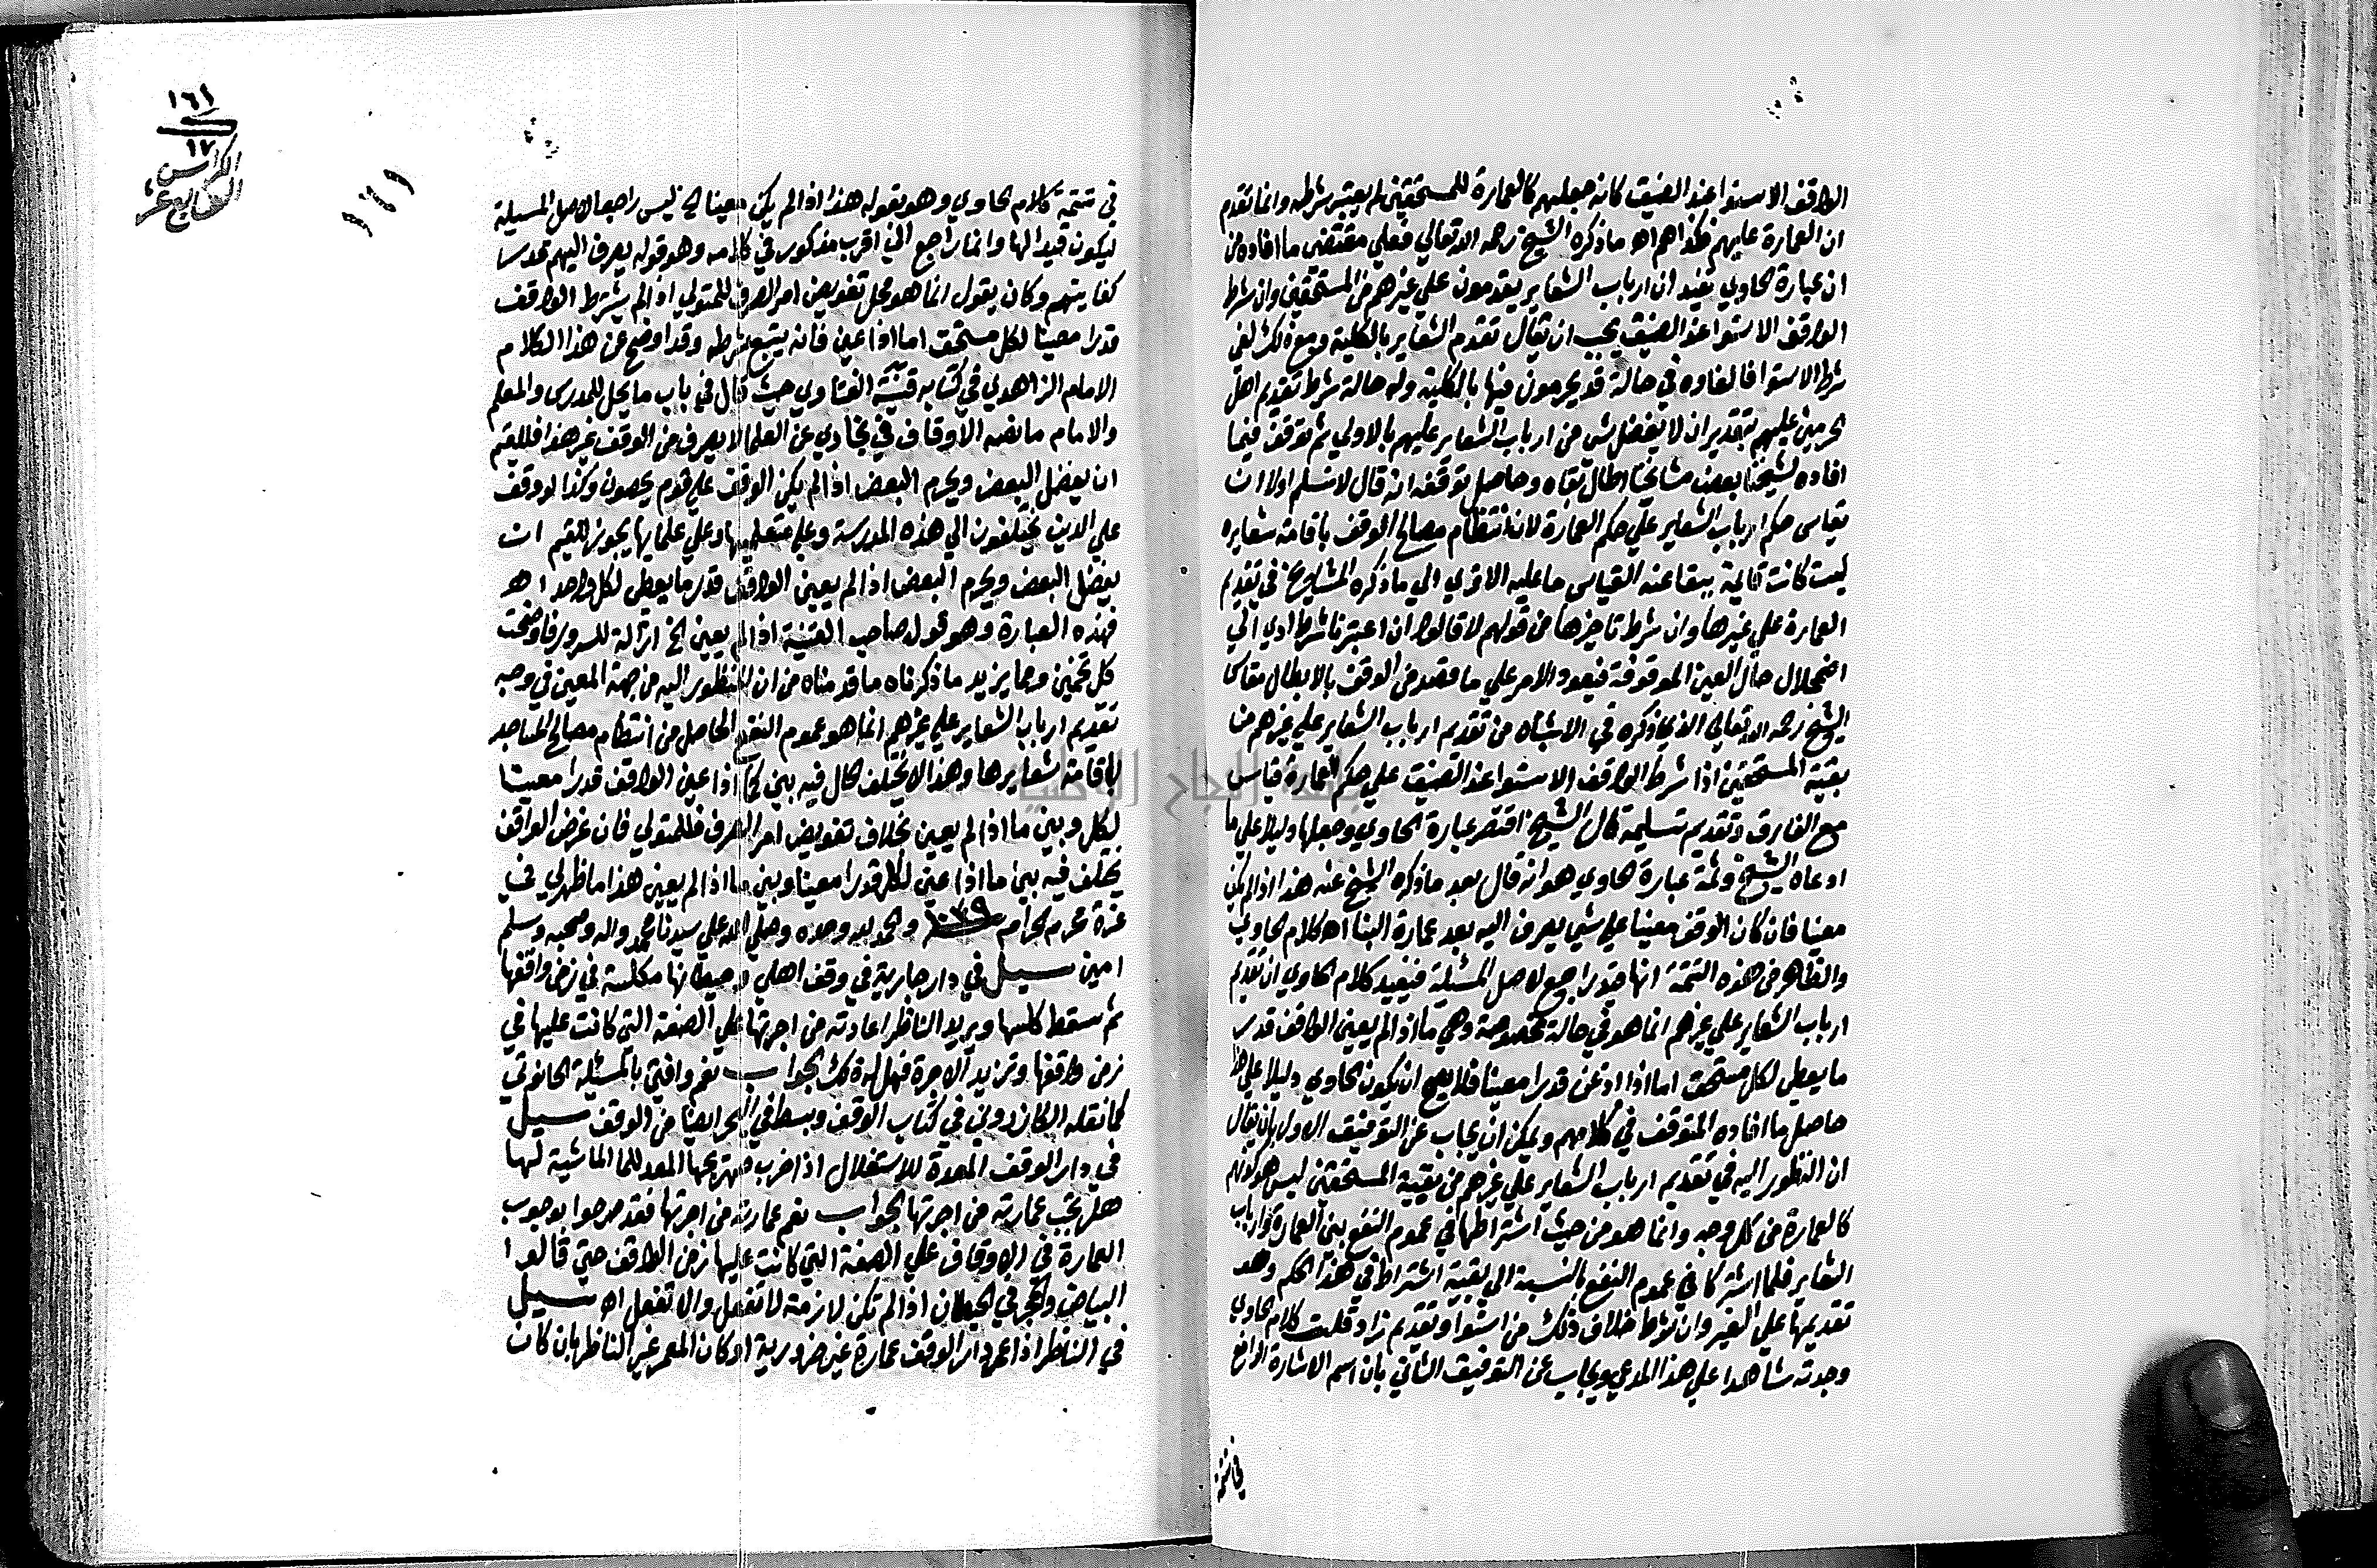 الواقف الاستوا عند الضيق كانه جعلهم كالعمارة للمستحقين لم يعتبر شرطه وانما تقدم
ان العمارة عليهم فكذا هم اه ما ذكره الشيخ رحمه الله تعالي فعلي مقتضي ما افاده من
ان عبارة الحاوي تفيد ان ارباب الشعاير يقدمون علي غيرهم من المستحقين وان شرط
الواقف الاستوا عند الضيق يجب ان يقال تقدم الشعاير بالكلية ومع ذلك لغي
شرط الاستوا فالغاوه في حالة قد يحرمون فيها بالكلية وله حالة شرط تقديم اهل
الحرمين عليهم بتقدير ان لا يفضل شي من ارباب الشعاير عليهم بالاولي ثم توقف فيما
افاده شيخنا بعض مشايخنا اطال بقاه وحاصل توقفه انه قال لا نسلم اولا ان
يقاس حكم ارباب الشعاير علي حكم العمارة لان انتظام مصالح الوقف باقامة شعايره
ليست كانت قايمة ببقا عنه القياس ما عليه الاتري الي ما ذكره المشايخ في تقديم
العمارة علي غيرها وان شرط تاخيرها من قولهم لا قالوا ان اعتبرنا شرط ادي الي
اضمحلال حال العين الموقوفة فيعود الامر علي ما قصد من الوقف بالابطال مقاس
الشيخ رحمه الله تعالي الذي ذكره في الاشباه من تقديم ارباب الشعاير علي غيرهم من
بقية المستحقين اذا شرط الواقف الاستوا عند الضيق علي حكم العمارة قياس
مع الفارق وتقديم تسليمه قال الشيخ اقتصر عبارة الحاوي وجعلها دليلا علي ما
ادعاه الشيخ وتمة عبارة الحاوي هو انه قال بعد ما ذكره الشيخ عنه هذا اذا لم يكن
معينا فان كان الوقف معينا علي شي يصرف اليه بعد عمارة البنا اه كلام الحاوي
والظاهر من هذه التتمة انها قيد راجع لاصل المسئلة فيفيد كلام الحاوي ان تقديم
ارباب الشعاير علي غيرهم انما هو في حالة مخصوصة وهي ما اذا لم يعين الواقف قدر
ما يعطي لكل مستحق اما اذا عين قدرا معينا فلا يصح ان يكون الحاوي دليلا علي هذا
حاصل ما افاده المتوقف في كلامهم ويمكن ان يجاب عن التوفيق الاول بان يقال
ان المنظور اليه في تقديم ارباب الشعاير علي غيرهم من بقية المستحقين ليس هو كونهم
كالعمارة من كل وجه وانما هو من حيث اشتراطها في عموم النفع بين العمارة وارباب
الشعاير فلما اشتركا في عموم النفع بالنسبة الي بقية اشتراط في هذا الحكم وهو
تقديمها علي الغير وان شرط خلاف ذلك من استوا وتقديم زاد قلت كلام الحاوي
وجدته شاهدا علي هذا المدعي ويجاب عن التوفيق الثاني بان اسم الاشارة الواقع
في تتمة
١٦١
١٧
الكراس
السابع عشر
١٦١
في تتمة كلام الحاوي وهو بقوله هذا اذا لم يكن معينا الخ ليس راجعا لاصل المسيلة
ليكون قيدا لها وانما راجع الي اقرب مذكور في كلامه وهو قوله يصرف اليهم قدر
كفايتهم وكان يقول انما هو محل تفويض امر الصرف للمتولي اذا لم يشرط الواقف
قدرا معينا لكل مستحق اما اذا عين فانه يتبع شرطه وقد اوضح عن هذا الكلام
الامام الزاهدي في كتابه قنية الفتاوي حيث قال في باب ما يحل للمدرس والمعلم
والامام ما نصه الاوقاف في بخاري عن العلما لا يعرف من الوقف غير هذا فللقيم
ان يفضل البعض ويحرم البعض اذا لم يكن الوقف علي قوم يحصون وكذا لو وقف
علي الذين يختلفون الي هذه المدرسة وعلي متعلميها وعلي علمايها يجوز للقيم ان
يفضل البعض ويحرم البعض اذا لم يعين الواقف قدر ما يعطي لكل واحد اه
فهذه العبارة وهو قول صاحب القنية اذا لم يعين الخ ازالة للسرور فاوضحت
كل تخمين ومما يزيد ما ذكرناه ما قدمناه من ان المنظور اليه من جهة المعين في وجه
تقديم ارباب الشعاير علي غيرهم انما هو عموم النفع الحاصل من انتظام مصالح المساجد
لاقامة شعايرها وهذا لا يختلف كال فيه بين كما اذا عين الواقف قدرا معينا
لكل وبين ما اذا لم يعين بخلاف تفويض امر الصرف فللمتولي فان غرض الواقف
يختلف فيه بين ما اذا عين لكل قدرا معينا وبين ما اذا لم يعين هذا ما ظهر لي في
غرة محرم الحرام والحمد لله وحده وصلي الله علي سيدنا محمد واله وصحبه وسلم
امين سيل في دار جارية في وقف اهلي وجميع انها مكلسة في زمن واقفها
ثم سقط كلسها ويريد الناظر اعادته من اجرتها علي الصفة التي كانت عليها في
زمن واقفها وتزيد الاجرة فهل له ذلك الجواب نعم وافتي بالمسئلة الحانوتي
كما نقله الكازروني في كتاب الوقف وبسط في البحر ايضا من الوقف سيل
في دار الوقف المعدة للاستغلال اذا خرب صهريجها المعد للما الماشية لها
هل يجب عمارته من اجرتها الجواب نعم عمارته من اجرتها فقد صرحوا بوجوب
العمارة في الاوقاف علي الصفة التي كانت عليها زمن الواقف حتي قالوا
البياض والحمرة في الحيطان اذا لم تكن لازمة لا تفعل والا تفعل اه سيل
في الناظر اذا عمر دار الوقف عمارة غير ضرورية او كان المعمر غير الناظر بان كان